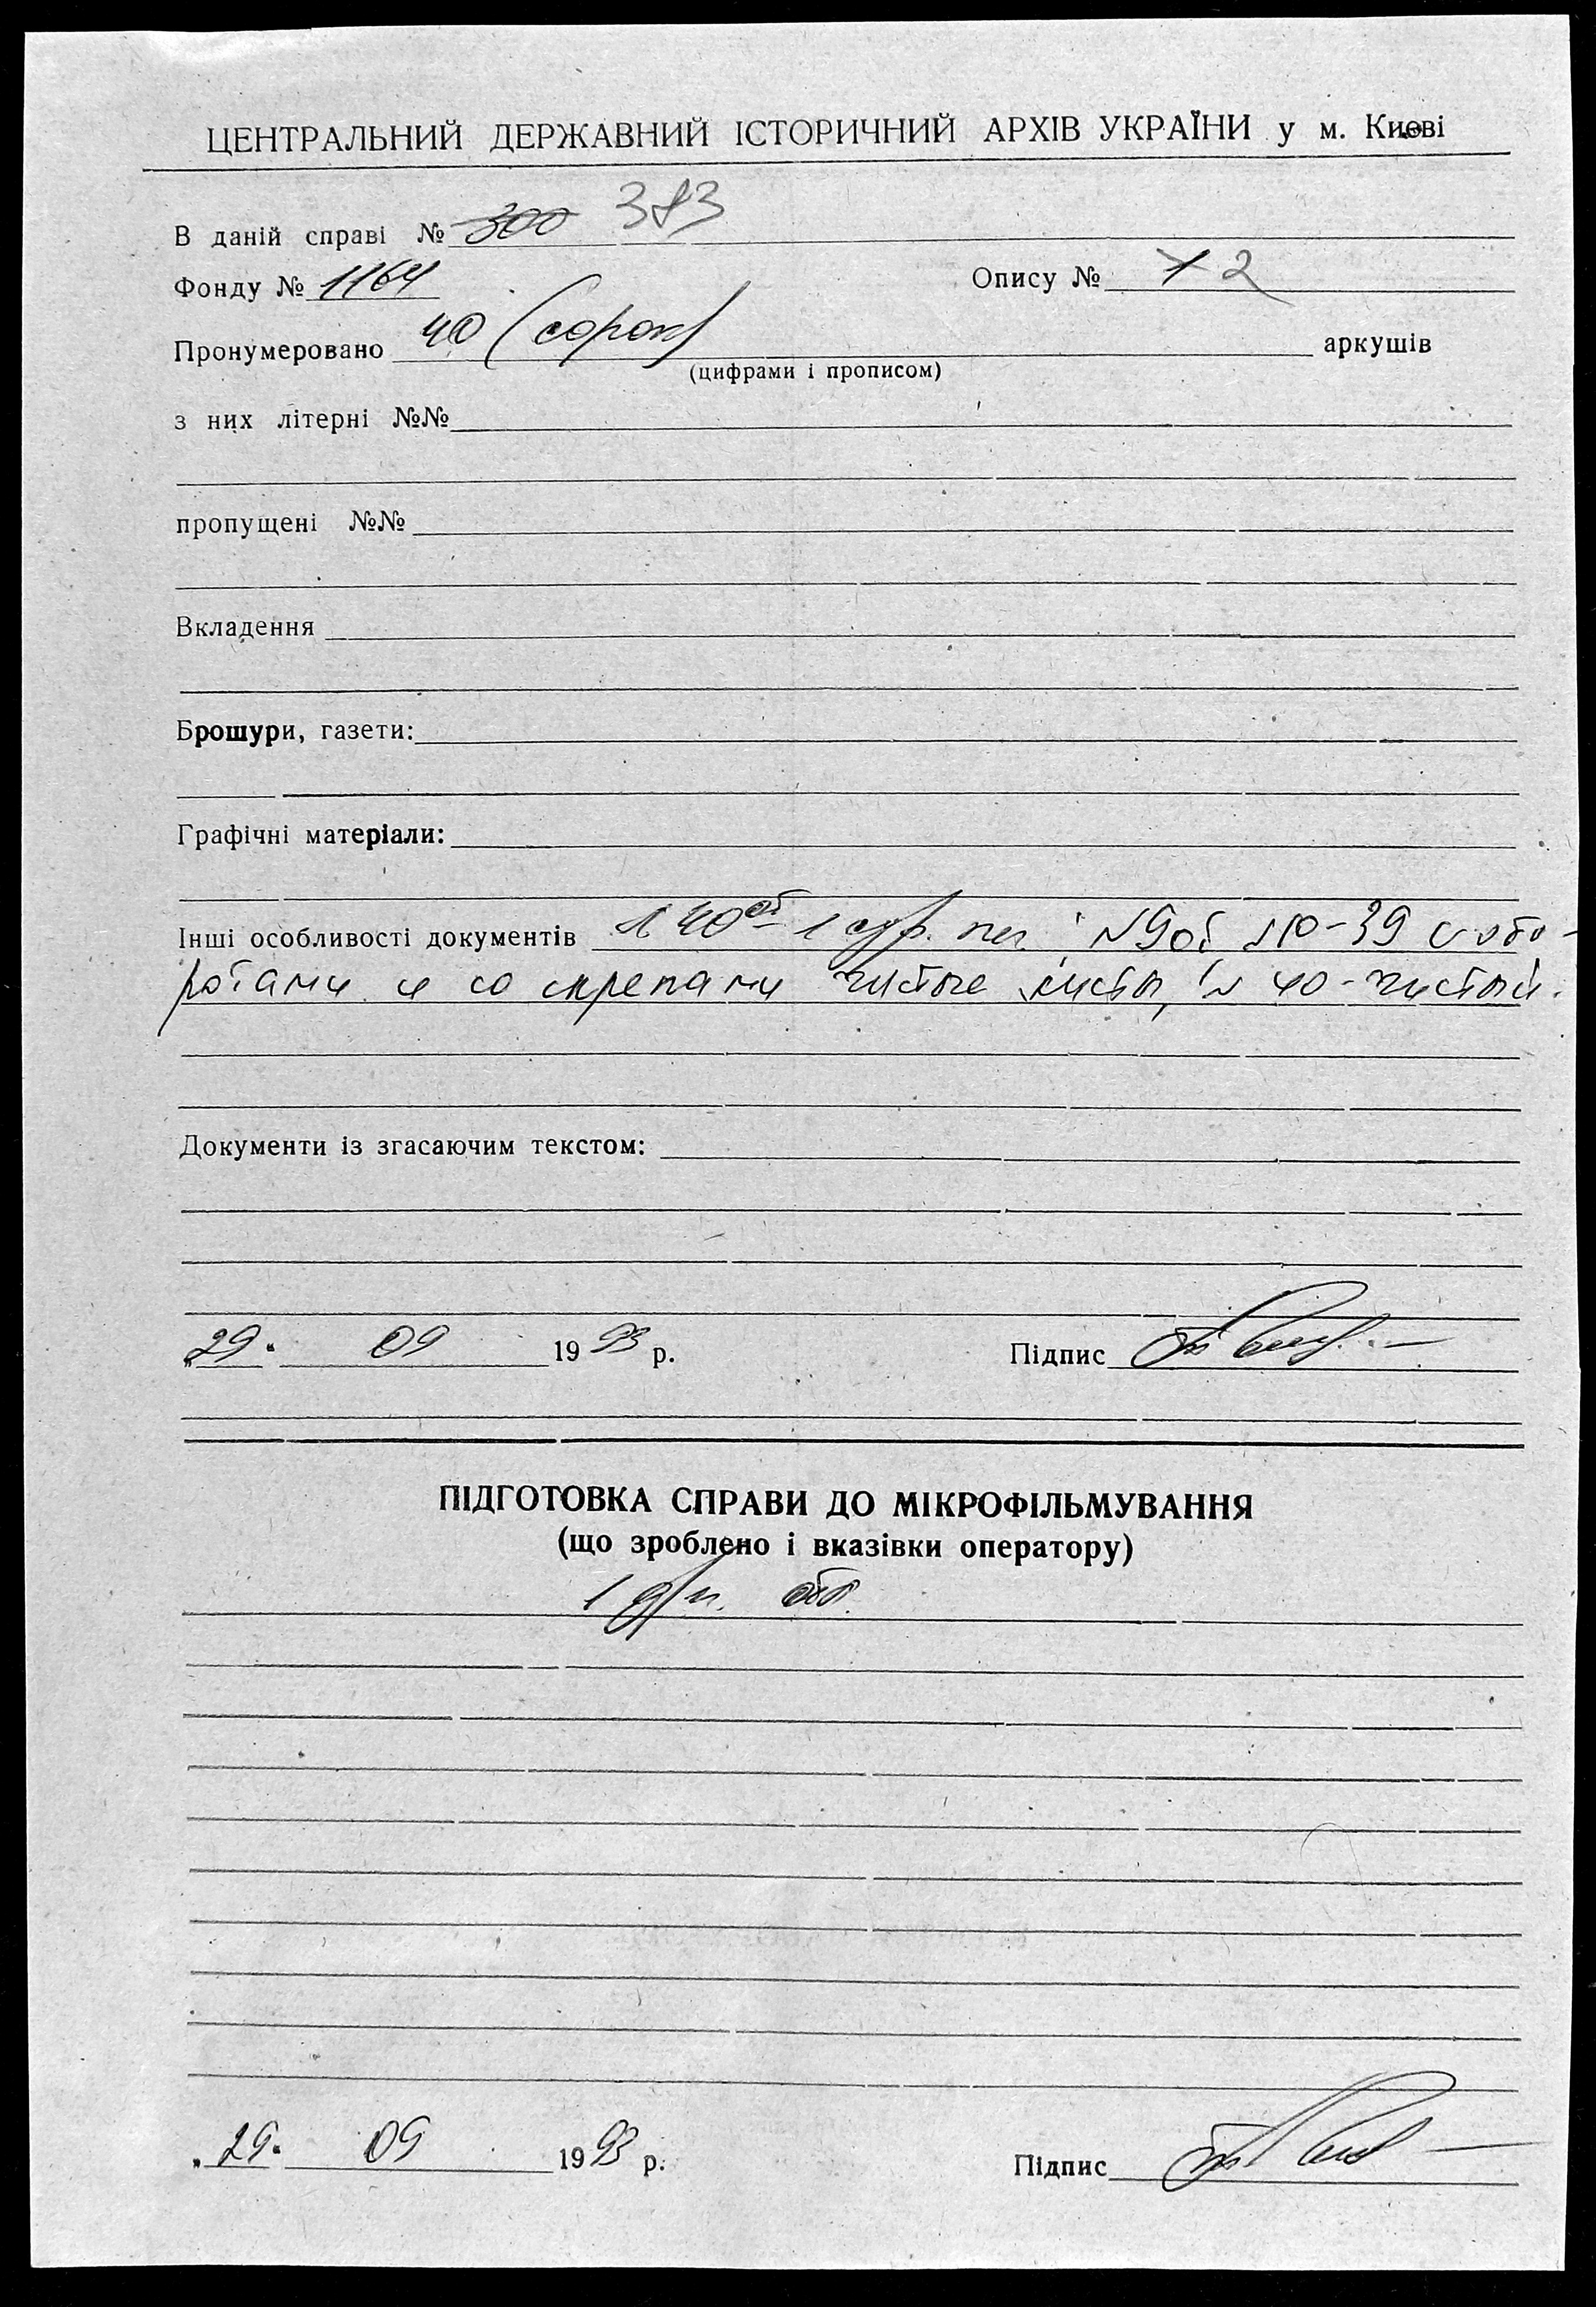 ЦЕНТРАЛЬНИЙ ДЕРЖАВНИЙ ІСТОРИЧНИЙ АРХІВ УКРАЇНИ у м. Києві
В даній справі № 300 383
Фонду № 1164 Опису № 1 2
Пронумеровано 40 (сорок) аркушів
(цифрами і прописом)
з них літерні №№
пропущені №№
Вкладення
Брошури, газети:
Графічні матеріали:
Інші особливості документів 40об - 1 9об 10-39 с обо-
ротами и со скрепами чистые листы, 40 - чистый.
Документи із згасаючим текстом:
"29" 09 1993 р. Підпис
ПІДГОТОВКА СПРАВИ ДО МІКРОФІЛЬМУВАННЯ
(що зроблено і вказівки оператору)
1
"29" 09 1993 р. Підпис